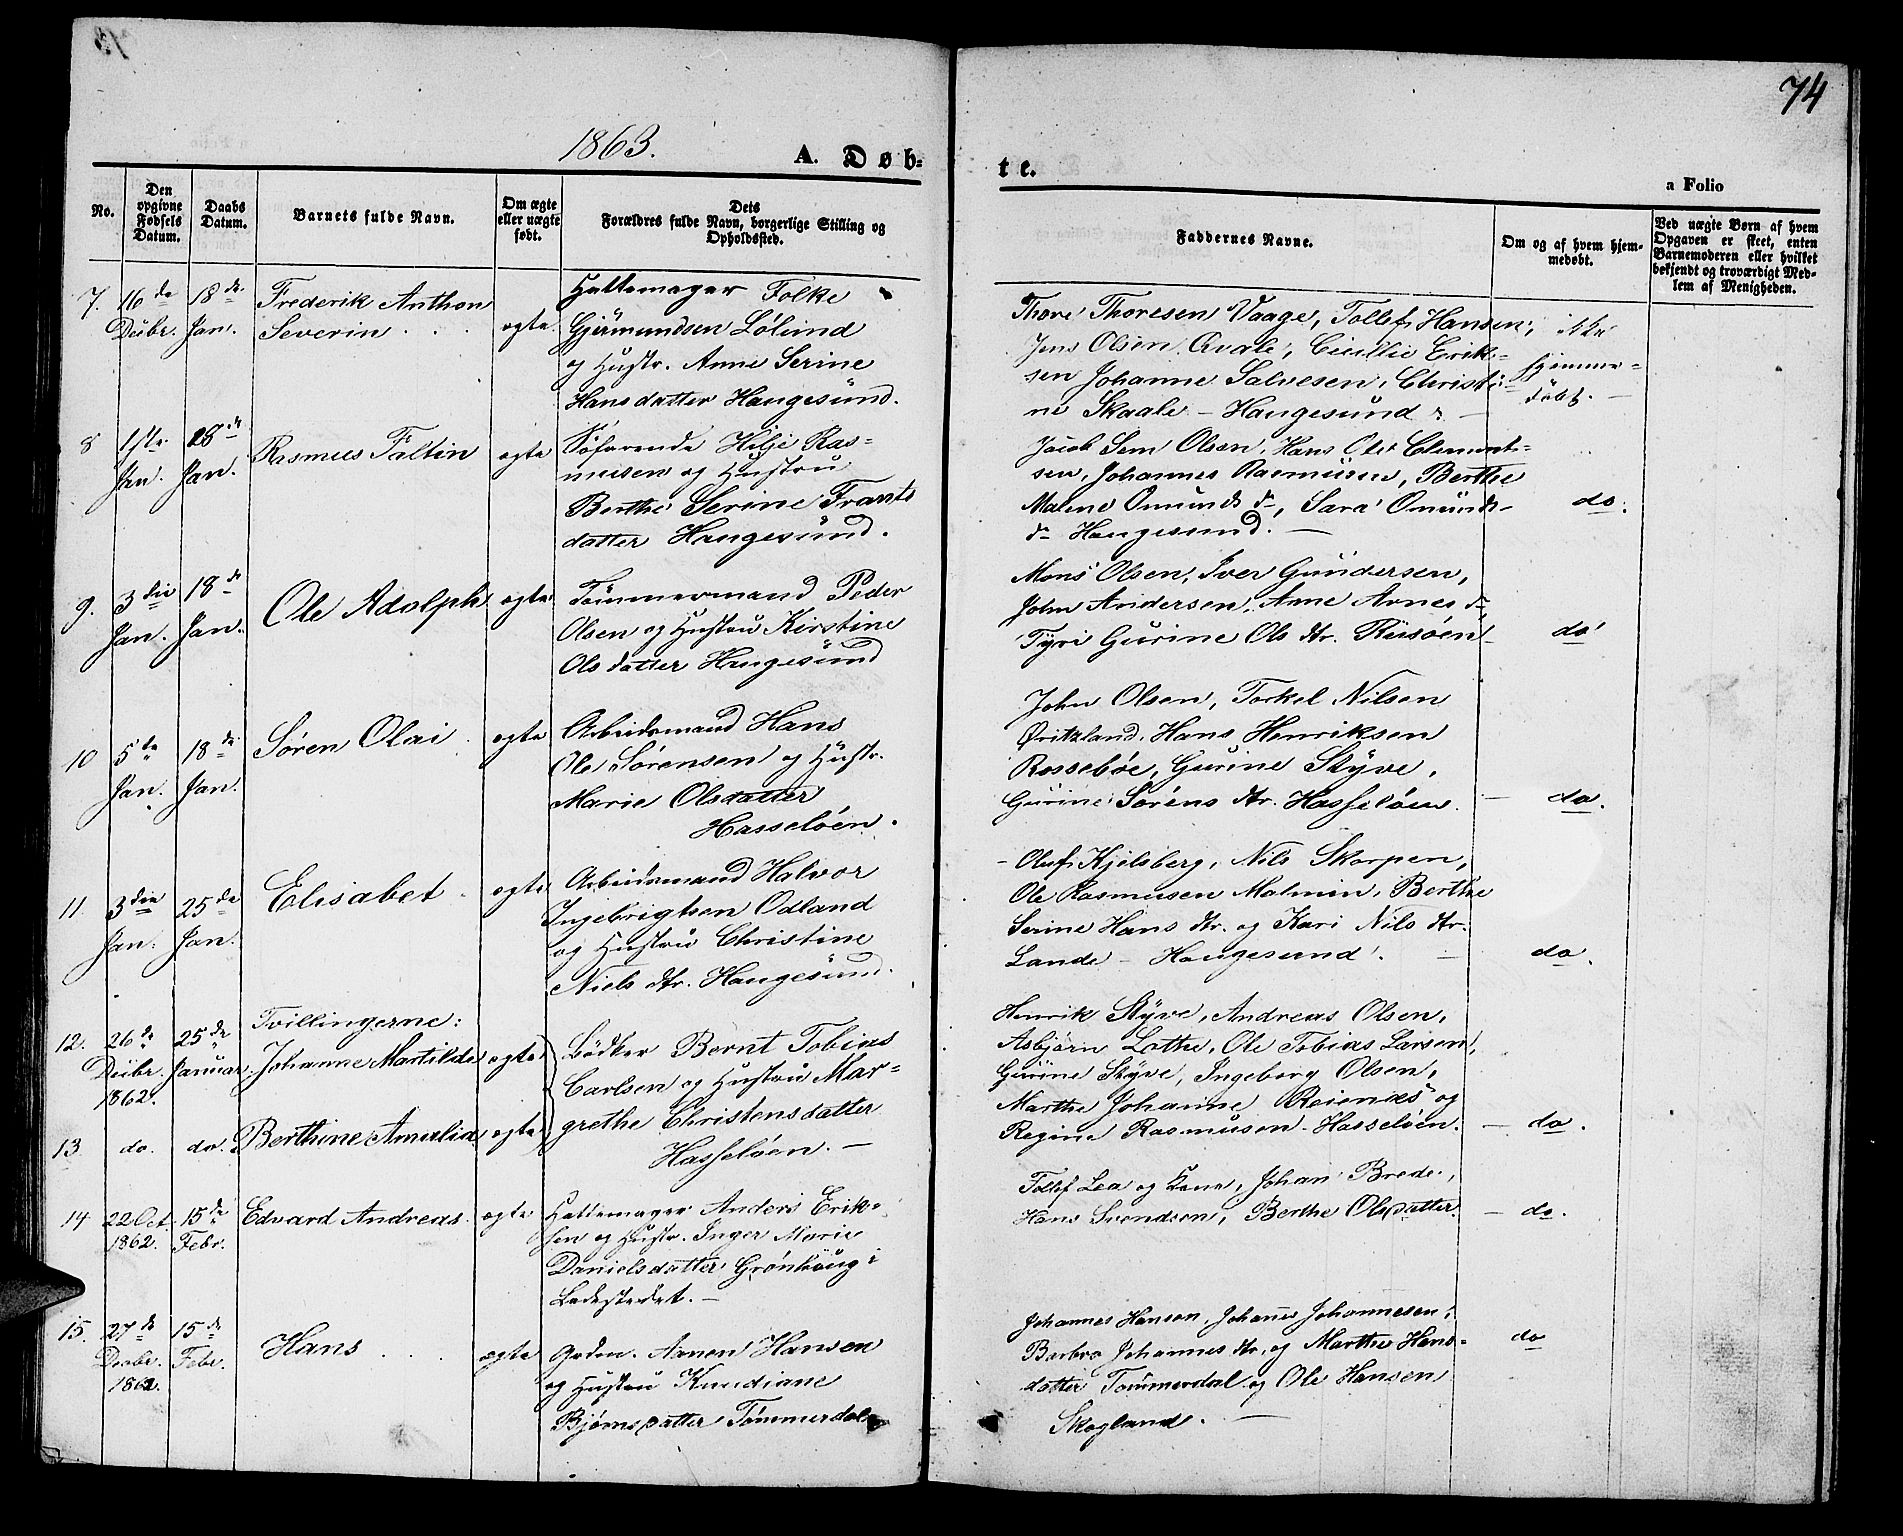 74
1863.
A. Døb-
te.
a Folio
No.
Den opgivne Fødsels Datum.
Daabs Datum.
Barnets fulde Navn.
Om ægte eller uægte født.
Dets Forældres fulde Navn, borgerlige Stilling og Opholdssted.
Faddernes Navne.
Om og af hvem hjemmedøbt.
Ved uægte Børn af hvem Opgaven er skeet, enten Barnemoderen eller hvilket bekjendt og troværdigt Medlem af Menigheden.
7. 16de Decbr. 18de Jan. Frederik Anthon
Severin . . . ægte
Hattemager Folke
Gjermundsen Lølind
og Hustr. Anne Serine
Hansdatter Haugesund.
Thore Thoresen Vaage, Tollef Hansen,
Jens Olsen Qvale, Cicilie Erik-
sen Johanne Salvesen, Christi-
ne Skaale - Haugesund
ikke
hjemme-
døbt. -
8 1ste Jan. 18de Jan. Rasmus Faltin ægte
Søfarende Hilje Ras-
musen og Hustru
Berthe Serine Frants
datter Haugesund.
Jacob Sem Olsen, Hans Olai Clement-
sen, Johannes Rasmusen, Berthe
Malene Omunds dr, Sara Omunds-
dr Haugesund. -
do.
9. 3die Jan. 18de Jan. Ole Adolph ægte
Tømmermand Peder
Olsen og Hustru Kirstine
Olsdatter Haugesund
Mons Olsen, Iver Gundersen,
John Andersen, Anne Arnes dr
Tyri Gurine Ols dtr. Risøen
do
10 5te Jan. 18de Jan. Søren Olai . ægte
Arbeidsmand Hans
Ole Sørensen og Hustr.
Marie Olsdatter
Hasseløen.
John Olsen, Torkel Nilsen
Qvitzland, Hans Henriksen
Rossebøe, Gurine Styve,
Gurine Sørens dtr. Hasseløen. -
do.
11. 3die Jan. 25de Jan. Elisabet . ægte
Arbeidsmand Halvor
Ingebrigtsen Odland
og Hustru Christine
Niels dtr. Haugesund.
Oluf Kjelsberg, Nils Skorpen,
Ole Rasmusen Malmin, Berthe
Serine Hans dtr. og Kari Nils dtr.
Lande - Haugesund. -
do.
12. 26de Decbr. 1862. 25de Januar. Tvillingerne:
Johanne Martilde ægte
13. do. do. Berthine Amalia ægte
Bødker Bernt Tobias
Carlsen og Hustru Mar-
grethe Christensdatter
Hasseløen. -
Henrik Styve, Andreas Olsen,
Asbjørn Lothe, Ole Tobias Larsen,
Gurine Styve, Ingeborg Olsen,
Marthe Johanne Reienæs og
Regine Rasmusen - Hasseløen. -
do.
14 22 Oct. 1862. 15de Febr. Edvard Andreas. ægte
Hattemager Anders Erik-
sen og Hustr. Inger Marie
Danielsdatter Grønhaug i
Ladestedet. -
Tollef Lea og Kone, Johan Brede,
Hans Svendsen, Berthe Olsdatter. -
do.
15. 27de Decbr. 1862. 15de Febr. Hans . . . ægte
Grdm. Aanen Hansen
og Hustru Knudiane
Bjørnsdatter Tømmerdal
Johannes Hansen, Johannes Johannesen,
Barbro Johannes dtr. og Marthe Hans-
datter Tømmerdal og Ole Hansen
Skogland. -
do